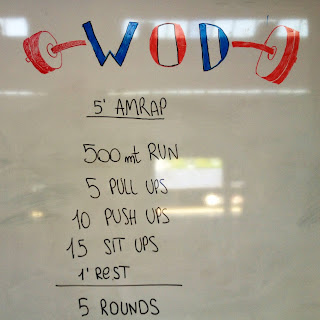 WOD
5' AMRAP
500 mt RUN
5 PULL UPS
10 PUSH UPS
15 SIT UPS
1' REST
5 ROUNDS